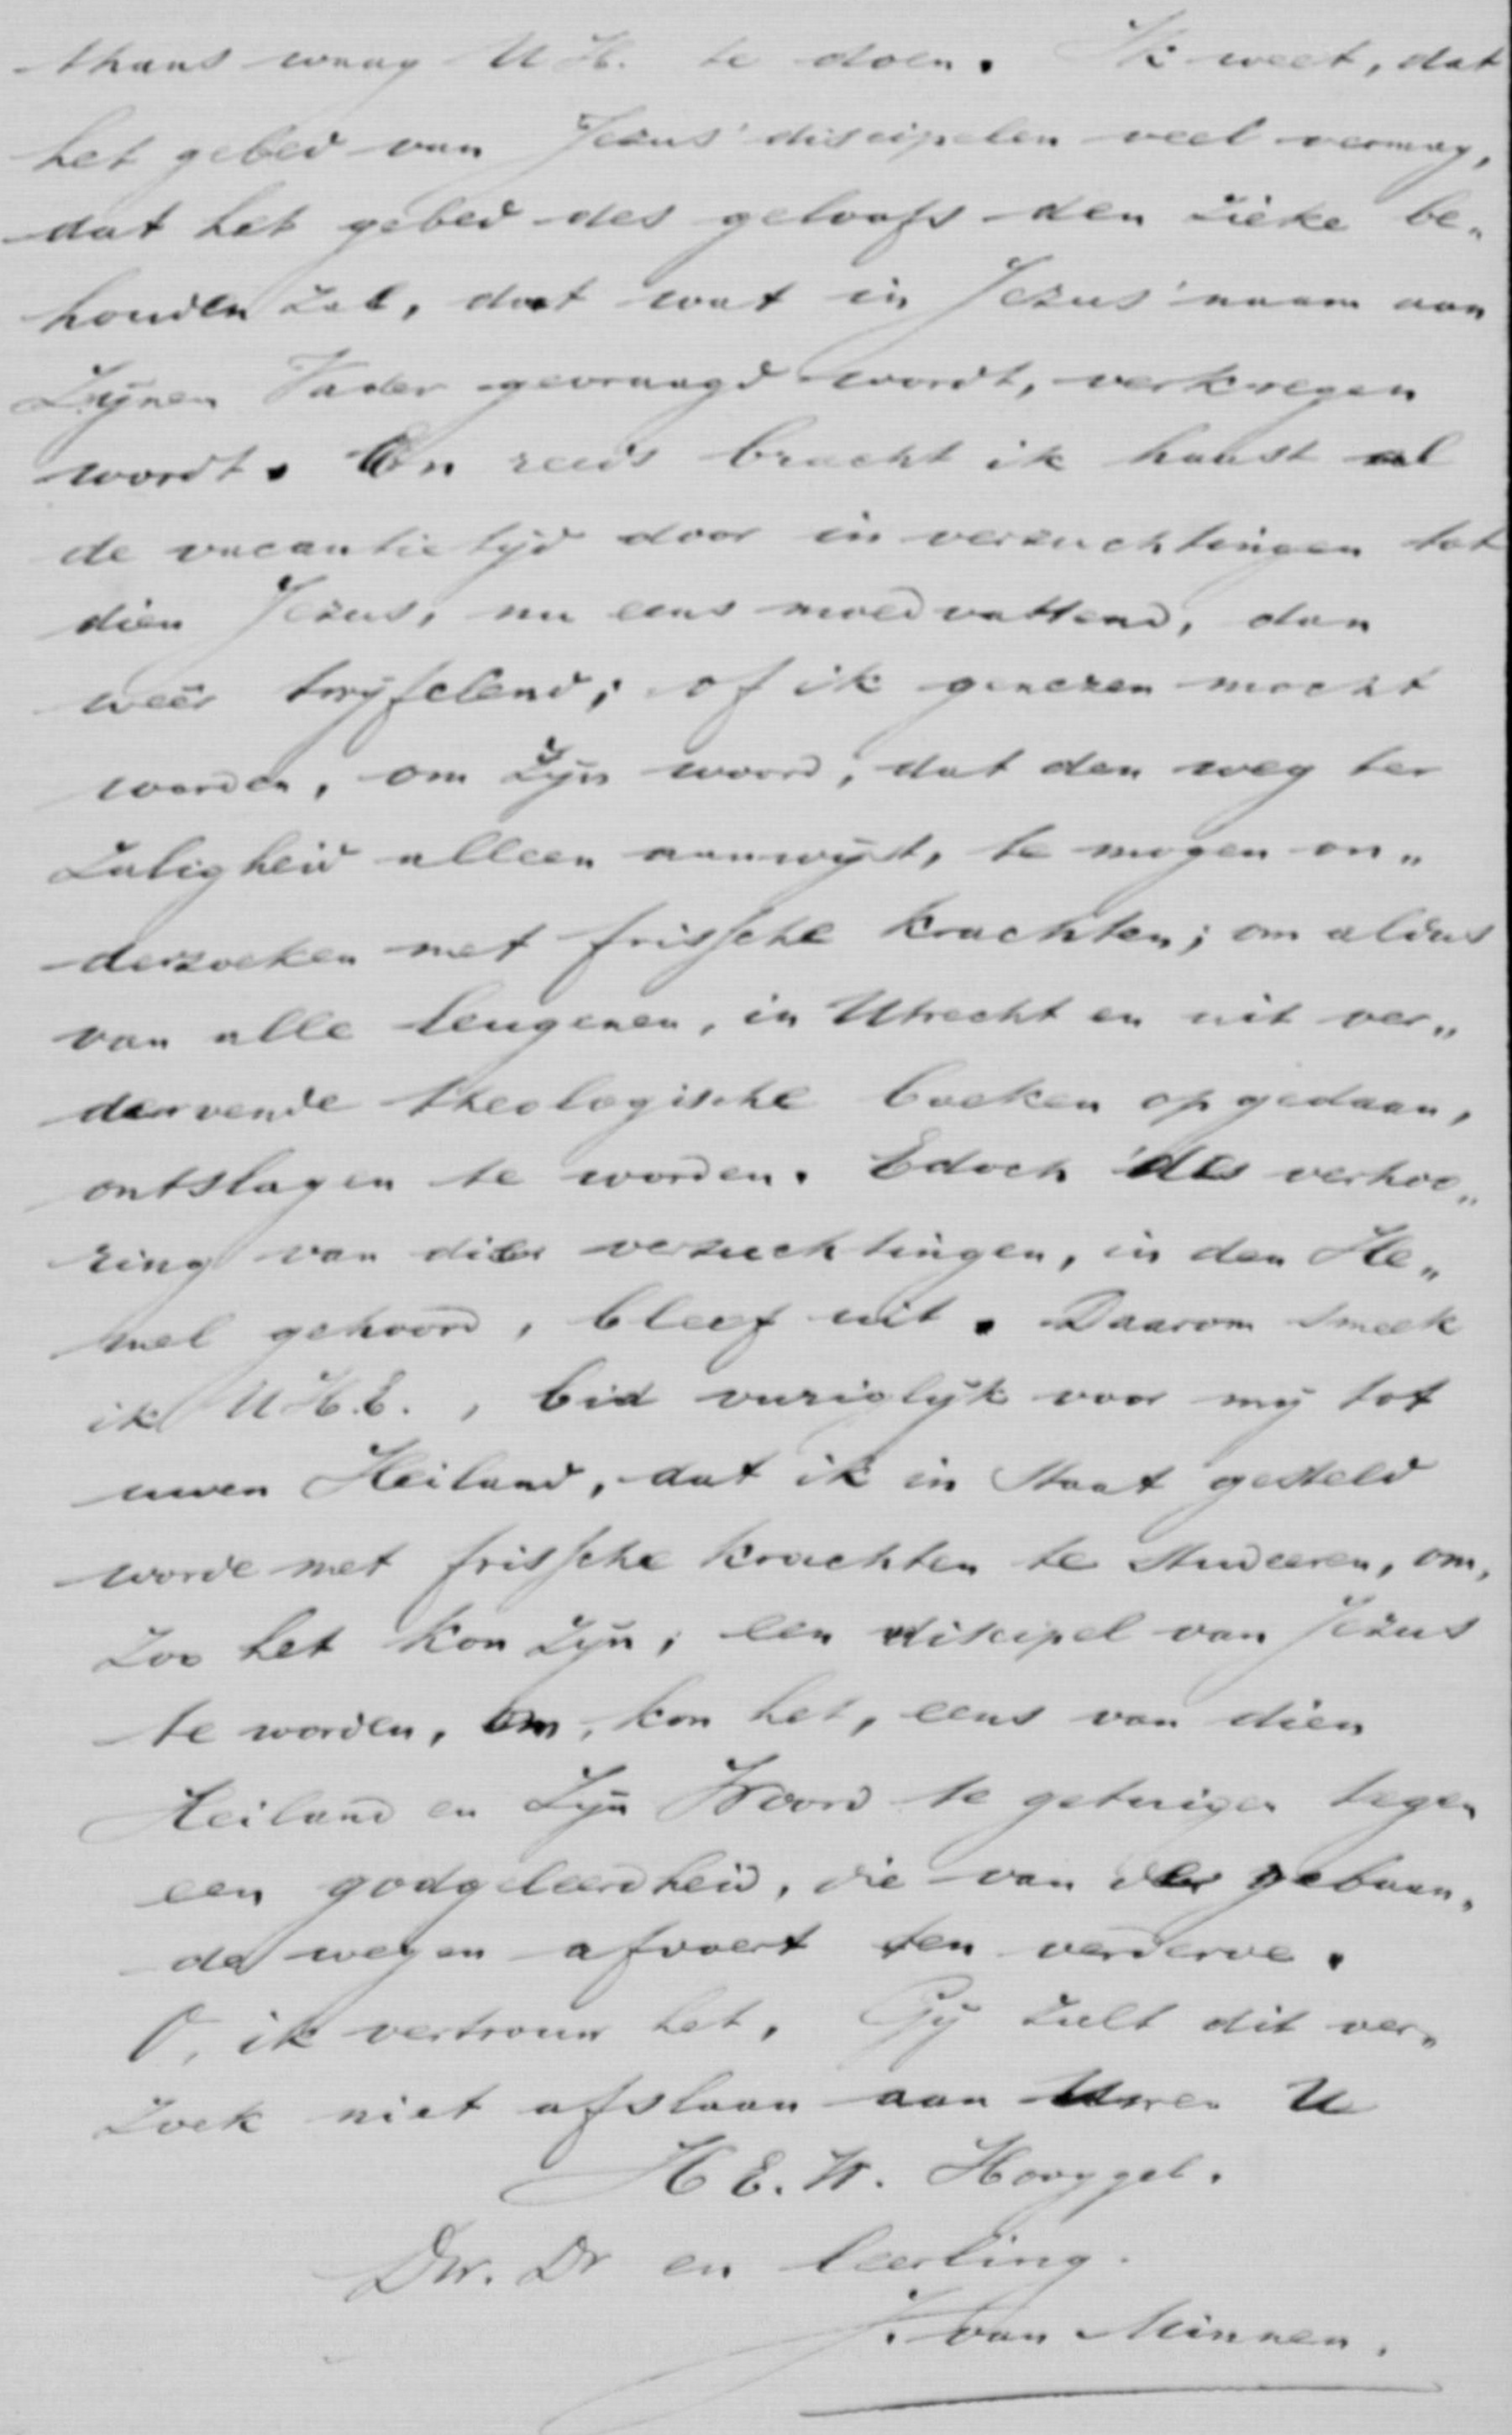 thans waag U H. te doen. Ik weet, dat
het gebed van Jezus' discipelen veel vermag,
dat het gebed des geloofs den zieke be„
houden zal, dat wat in Jezus' naam aan
Zijnen Vader gevraagd wordt, verkregen
wordt. En reeds bracht ik haast al
de vacantietijd door in verzuchtingen tot
dien Jezus, nu eens moedvattend, dan
weêr twijfelend; of ik genezen mocht
worden, om Zijn woord, dat den weg ter
Zaligheid alleen aanwijst, te mogen on„
derzoeken met frissche krachten; om aldus
van alle leugenen, in Utrecht en uit ver„
dervende theologische boeken opgedaan,
ontslagen te worden. Edoch des verhoo„
ring van dier verzuchtingen, in den He„
mel gehoord, bleef uit. Daarom smeek
ik U H.E., bid vuriglijk voor mij tot
uwen Heiland, dat ik in Staat gesteld
worde met frissche krachten te studeeren, om,
zoo het kon zijn, een discipel van Jezus
te worden, om, kon het, eens van dien
Heiland en Zijn Woord te getuigen tegen
een godgeleerdheid, die van der gebaan„
de wegen afvoert ten verderve.
O, ik vertrouw het, Gij zult dit ver„
zoek niet afslaan aan Uwen U
H E. W. Hooggel.
Dw. Dr en leerling.
J. van Minnen.